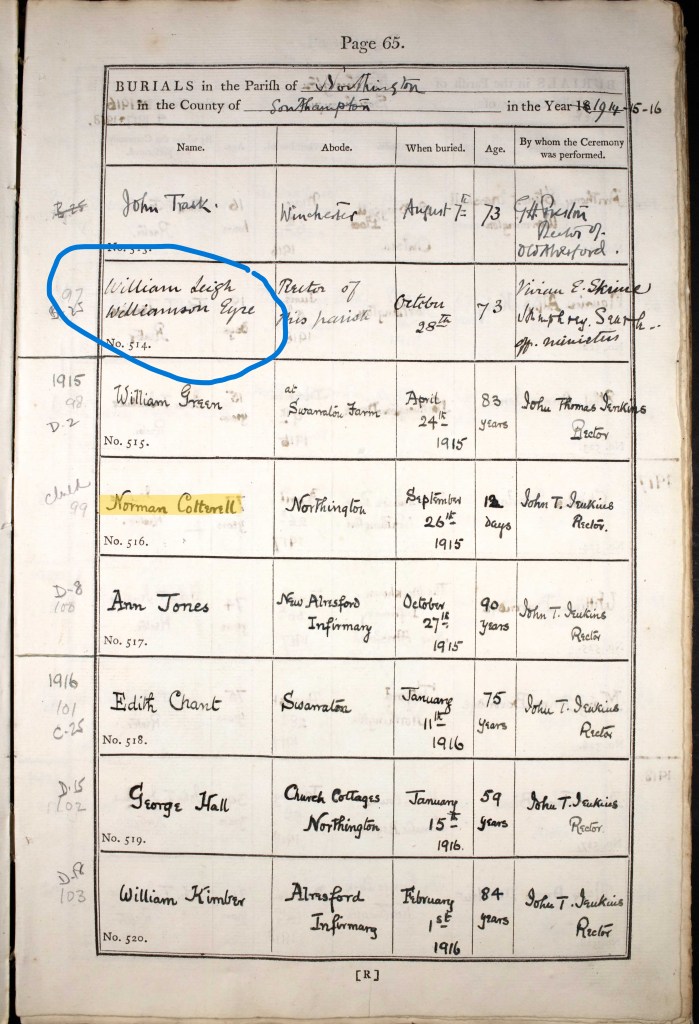 Page 65.
BURIALS in the Parish of Northington
in the County of Southampton in the Year 18 1914-15-16
Name. Abode. When buried. Age. By whom the Ceremony was performed.
B-25
John Trask. Winchester August 7th 73 G H Preston
Rector of
Old Alresford.
No. 513.
97
25
William Leigh Williamson Eyre
Rector of this parish
October 28th
73
Vivian E. Skrine
off. ministers
No. 514.
1915
98
D-2
William Green
at Swarraton Farm
April 24th 1915
83 years
John Thomas Jenkins
Rector
No. 515.
child
99
Norman Cotterell
Northington
September 26th 1915
12 Days
John T. Jenkins
Rector.
No. 516.
D-8
100
Ann Jones
New Alresford Infirmary
October 27th 1915
90 years
John T. Jenkins
Rector
No. 517.
1916
101
C-25
Edith Chant
Swarraton
January 11th 1916
75 years
John T. Jenkins
Rector
No. 518.
D-15
102
George Hall
Church Cottages Northington
January 15th 1916.
59 years
John T. Jenkins
Rector.
No. 519.
103
William Kimber
Alresford Infirmary
February 1st 1916
84 years
John T. Jenkins
Rector
No. 520.
[R]